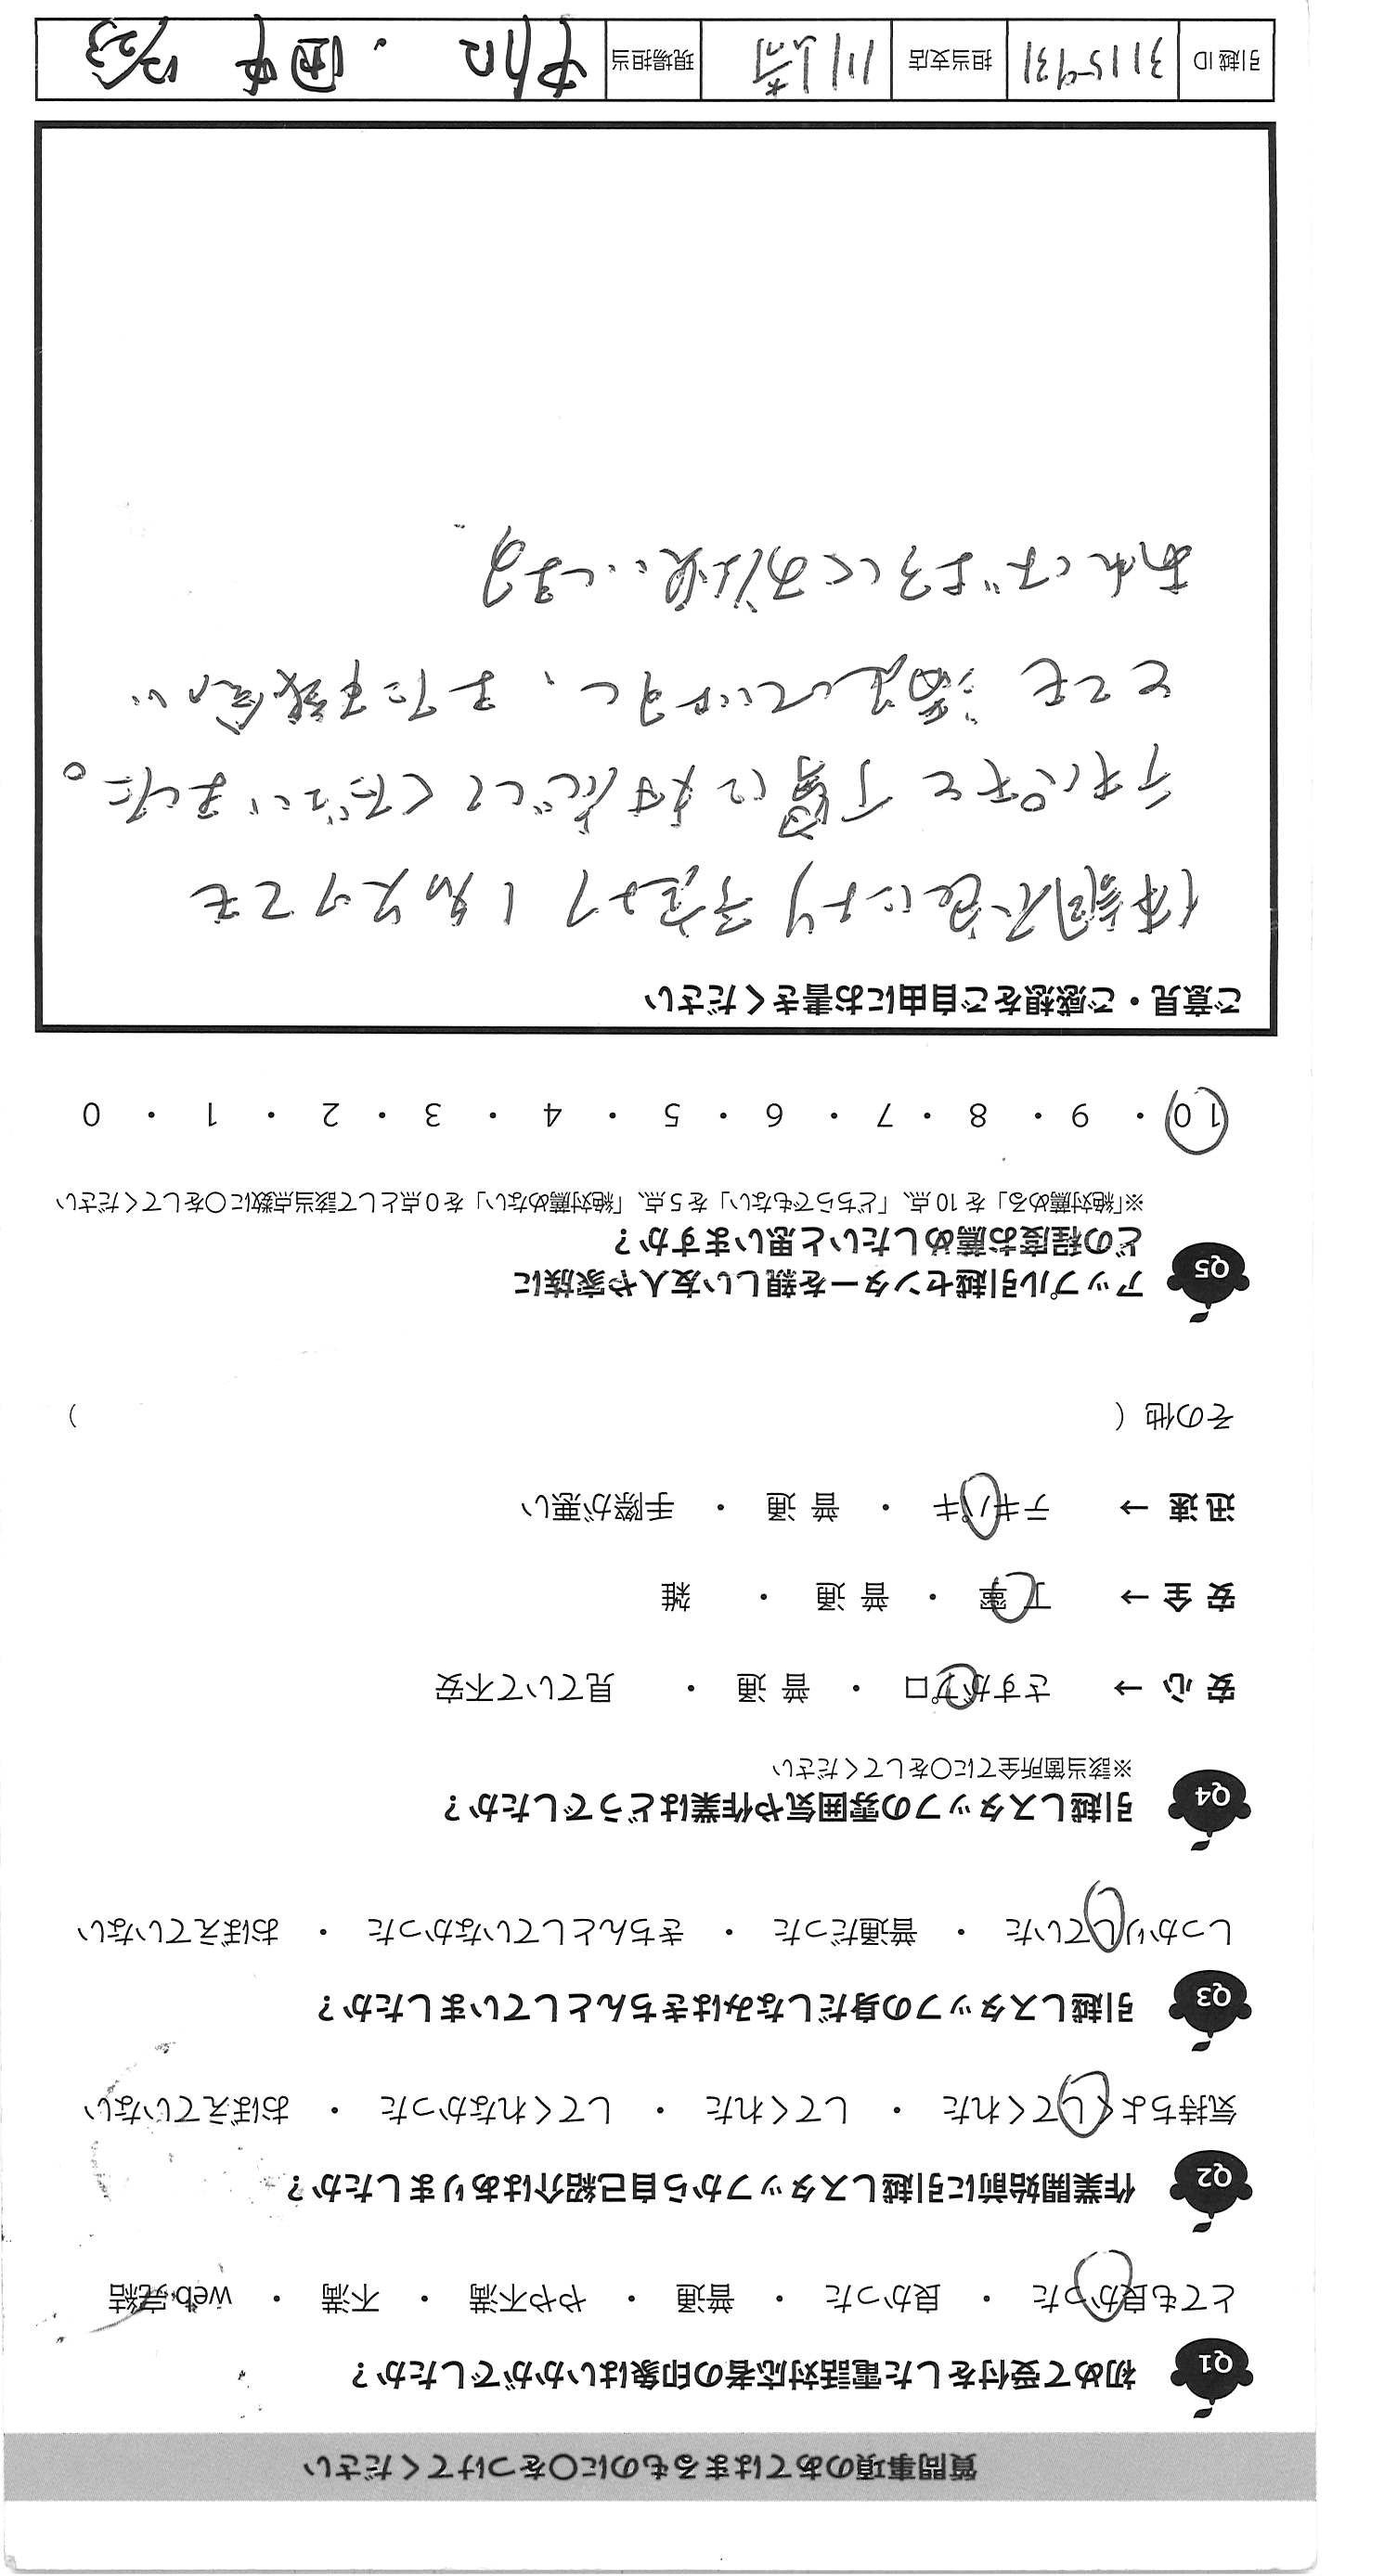 質問事項のあてはまるものに○をつけてください
Q1 初めて受付をした電話対応者の印象はいかがでしたか？
とても良かった ・ 良かった ・ 普通 ・ やや不満 ・ 不満 ・ web完結
Q2 作業開始前に引越しスタッフから自己紹介はありましたか？
気持ちよくしてくれた ・ してくれた ・ してくれなかった ・ おぼえていない
Q3 引越しスタッフの身だしなみはきちんとしていましたか？
しっかりしていた ・ 普通だった ・ きちんとしていなかった ・ おぼえていない
Q4 引越しスタッフの雰囲気や作業はどうでしたか？
※該当箇所全てに○をしてください
安心 → さすがプロ ・ 普通 ・ 見ていて不安
安全 → 丁寧 ・ 普通 ・ 雑
迅速 → テキパキ ・ 普通 ・ 手際が悪い
その他（ ）
Q5 アップル引越センターを親しい友人や家族に
どの程度お薦めしたいと思いますか？
※「絶対薦める」を10点、「どちらでもない」を5点、「絶対薦めない」を0点として該当点数に○をしてください
10 ・ 9 ・ 8 ・ 7 ・ 6 ・ 5 ・ 4 ・ 3 ・ 2 ・ 1 ・ 0
ご意見・ご感想をご自由にお書きください
体調不良により予定より1名欠けても
テキパキと丁寧に対応してくださいました。
とても満足していますし、また機会が
あればよろしくお願いします
引越ID 3115931 担当支店 川崎 現場担当 ・田中